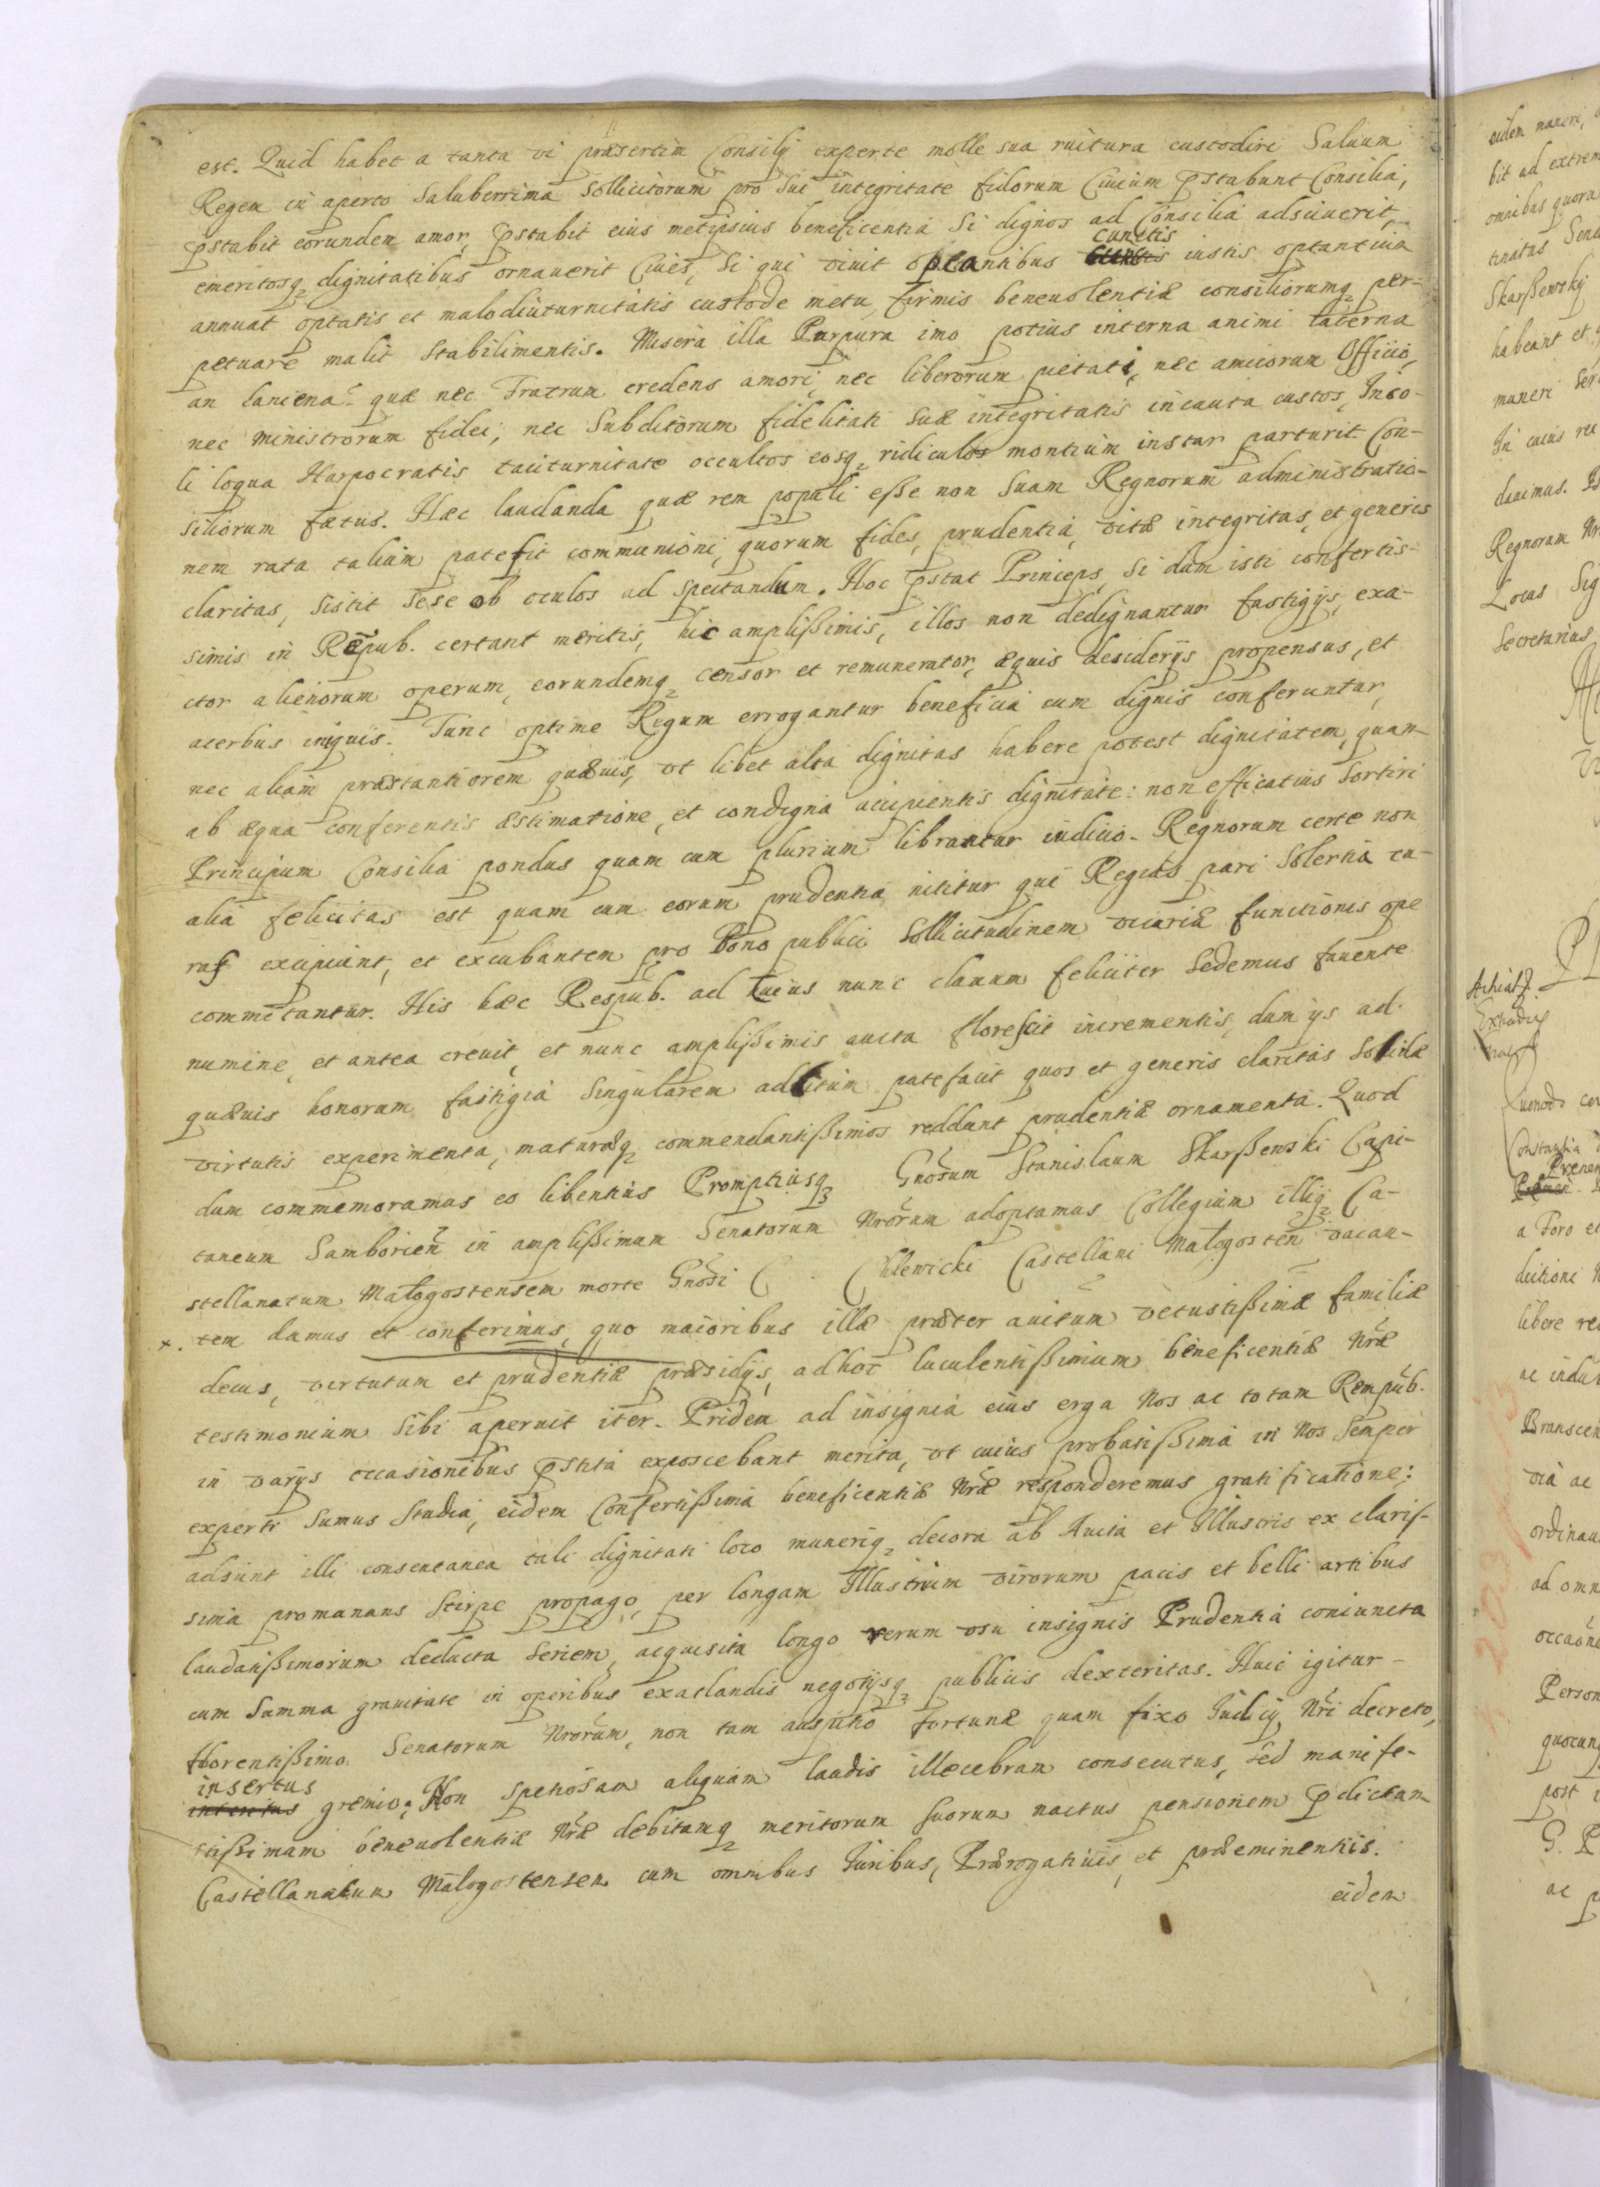 est. Quid habet a tanta vi præsertim Consilij experte molle sua ruitura custodire Saluum
Regem in aperto Saluberrima Sollicitorum pro Sui integritate fidorum Ciuium pstabunt Consilia,
pstabit eorundem amor, pstabit eius metipsius beneficentia Si dignos ad Consilia adsciuerit,
cunctis
emeritosq dignitatibus ornauerit Ciues, Si qui viuit optantibus cunctis iustis optantium
annuat optatis et malo diuturnitatis custode metu, firmis beneuolentiæ consiliorumq per-
petuare malit Stabilimentis. Misera illa Purpura imo potius interna animi laterna
an laniena quæ nec Fratrum credens amori, nec liberorum pietati, nec amicorum Officio,
nec ministrorum fidei, nec Subditorum fidelitati Suæ integritatis incauta custos, Inco-
li loqua Harpocratis taciturnitate occultos eosq ridiculos montium instar parturit Con-
siliorum fætus. Hæc laudanda quæ rem populi esse non Suam Regnorum administratio-
nem rata talium patefit communioni, quorum fides, prudentia, vitæ integritas, et generis
claritas, sistit Sese ob oculos ad Spectandum. Hoc pstat Princeps, Si dum isti confertis-
simis in Repub. certant meritis, hic amplißimis, illos non dedignantur fastigijs, exa-
ctor alienorum operum, eorundemq censor et remunerator, æquis desiderijs propensus, et
acerbus iniquis. Tunc optime Regum errogantur beneficia cum dignis conferuntur,
nec aliam præstantiorem quæuis, vt libet alta dignitas habere potest dignitatem, quam
ab æqua conferentis æstimatione, et condigna accipientis dignitate: non efficatius Sortiri
Principum Consilia pondus quam cum plurium librantur iudicio. Regnorum certe non
alia felicitas est quam cum eorum prudentia nititur qui Regias pari Solertia cu-
ras excipiunt, et excubantem pro Bono publico Sollicitudinem vicariæ functionis ope
commetantur. His hæc Respub. ad cuius nunc clauum feliciter Sedemus fauente
numine, et antea creuit, et nunc amplißimis aucta florescit incrementis, dum ijs ad
quæuis honorum fastigia Singularem aditum patefacit quos et generis claritas Solidæ
virtutis experimenta, maturæq commendantißimos reddunt prudentiæ ornamenta. Quod
dum commemoramus eo libentius Promptiusq Gnosum Stanislaum Skarßewski Capi-
taneum Samborien in amplißimum Senatorum Nrorum adoptamus Collegium illiq Ca-
stellanatum Małogostensem morte Gnosi C . Chlewicki Castellani Małogosten vacan-
x. tem damus et conferimus, quo maioribus illæ præter auitum vetustißimæ familiæ
decus, virtutum et prudentiæ præsidijs, adhoc luculentißimum beneficentiæ Nræ
testimonium Sibi aperuit iter. Pridem ad insignia eius erga Nos ac totam Rempub.
in varijs occasionibus pstita exposcebant merita, vt cuius probatißima in Nos Semper
experti Sumus Studia, eidem Confertißima beneficentiæ Nræ responderemus gratificatione:
adsunt illi consentanea tali dignitati loco munerîq decora ab Aucta et Illustris ex claris-
sima promanans Stirpe propago, per longam Illustrium virorum pacis et belli artibus
laudatißimorum deducta Seriem, acquisita longo rerum vsu insignis Prudentia coniuncta
cum Summa grauitate in operibus exatlandis negotijsq publicis dexteritas. Huic igitur
florentißimo Senatorum Nrorum, non tam auspitio fortunæ quam fixo Iudicij Nri decreto,
insertus
interitus gremio; Non spetiosam aliquam laudis illecebram consecutus, Sed manife-
stißimam beneuolentiæ Nræ debitamq meritorum Suorum nactus pensionem pdictum
Castellanatum Małogostensem cum omnibus Iuribus, Prærogatiuis, et præeminentiis.
eidem